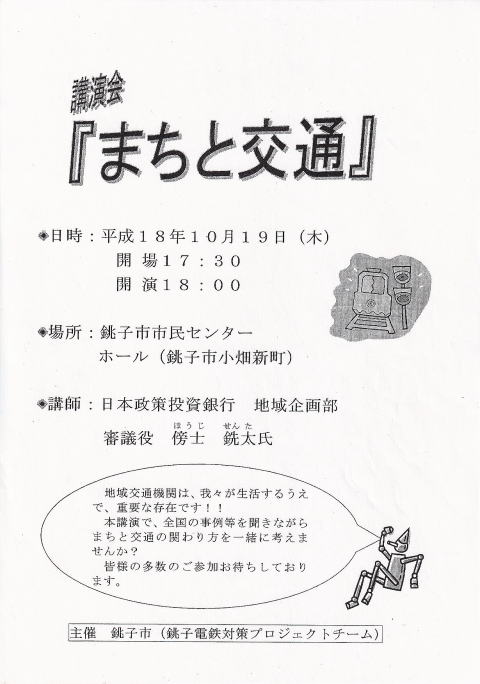 講演会
『まちと交通』
◈日時：平成１８年１０月１９日（木）
開 場１７：３０
開 演１８：００
◈場所：銚子市市民センター
ホール（銚子市小畑新町）
◈講師：日本政策投資銀行　地域企画部
ほうじ　せんた
審議役　傍士　銑太氏
地域交通機関は、我々が生活するうえ
で、重要な存在です！！
本講演で、全国の事例等を聞きながら
まちと交通の関わり方を一緒に考えま
せんか？
皆様の多数のご参加お待ちしており
ます。
主催　銚子市（銚子電鉄対策プロジェクトチーム）